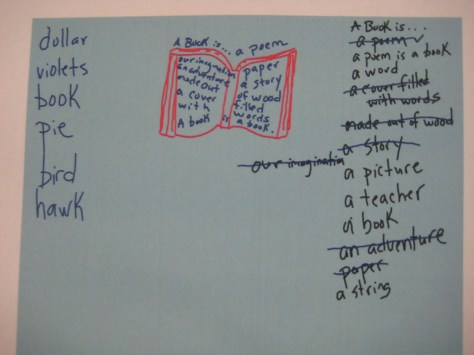 dollar
violets
book
pie
bird
hawk
A Book is... a poem
our imagination
an adventure
made out
a cover
with
A book
paper
a story
of wood
filled
words
is a book.
A Book is...
a poem
a poem is a book
a word
a cover filled
with words
made out of wood
a story
our imagination
a picture
a teacher
a book
an adventure
paper
a string